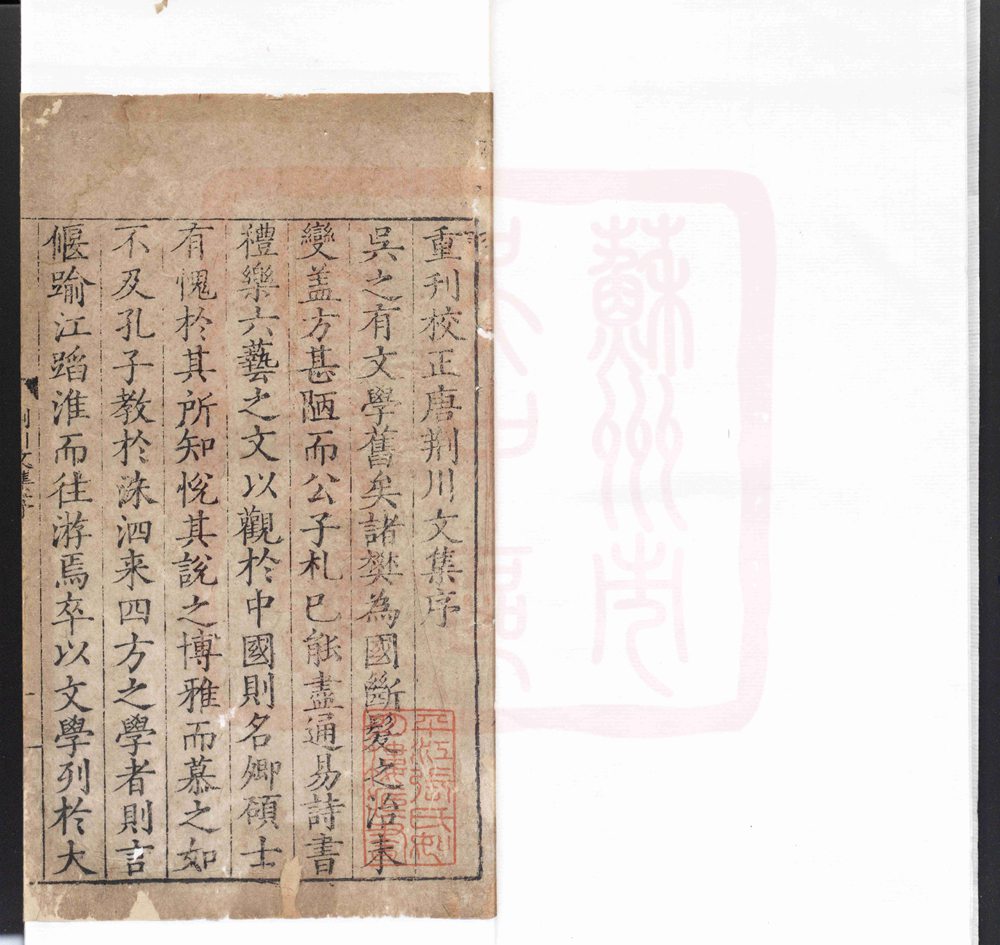 重刊校正唐荆川文集序
吳之有文學舊矣諸樊為國斷髮之治未
變盖方甚陋而公子札已能盡通易詩書
禮樂六藝之文以觀於中國則名卿碩士
有愧於其所知悅其說之博雅而慕之如
不及孔子教於洙泗来四方之學者則言
偃踰江蹈淮而往游焉卒以文學列於大